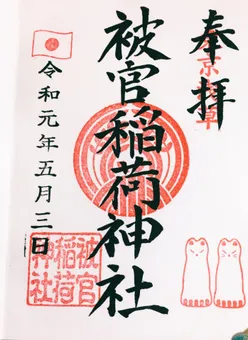 奉拝
被官稲荷神社
令和元年五月三日
被官
稲荷
神社